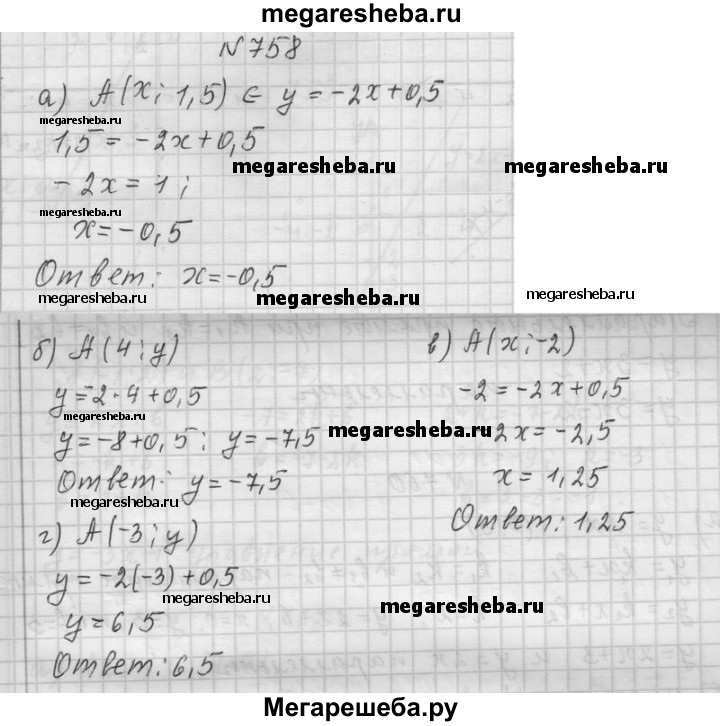 megaresheba.ru
N 758
а) A(x; 1,5) ∈ y = -2x + 0,5
megaresheba.ru
1,5 = -2x + 0,5
megaresheba.ru
megaresheba.ru
-2x = 1;
megaresheba.ru
x = -0,5
Ответ: x = -0,5
megaresheba.ru
megaresheba.ru
megaresheba.ru
б) A(4; y)
y = -2·4 + 0,5
megaresheba.ru
y = -8 + 0,5; y = -7,5
Ответ: y = -7,5
megaresheba.ru
в) A(x; -2)
-2 = -2x + 0,5
megaresheba.ru
2x = -2,5
x = 1,25
Ответ: 1,25
г) A(-3; y)
y = -2(-3) + 0,5
megaresheba.ru
megaresheba.ru
y = 6,5
Ответ: 6,5
Мегарешеба.ру